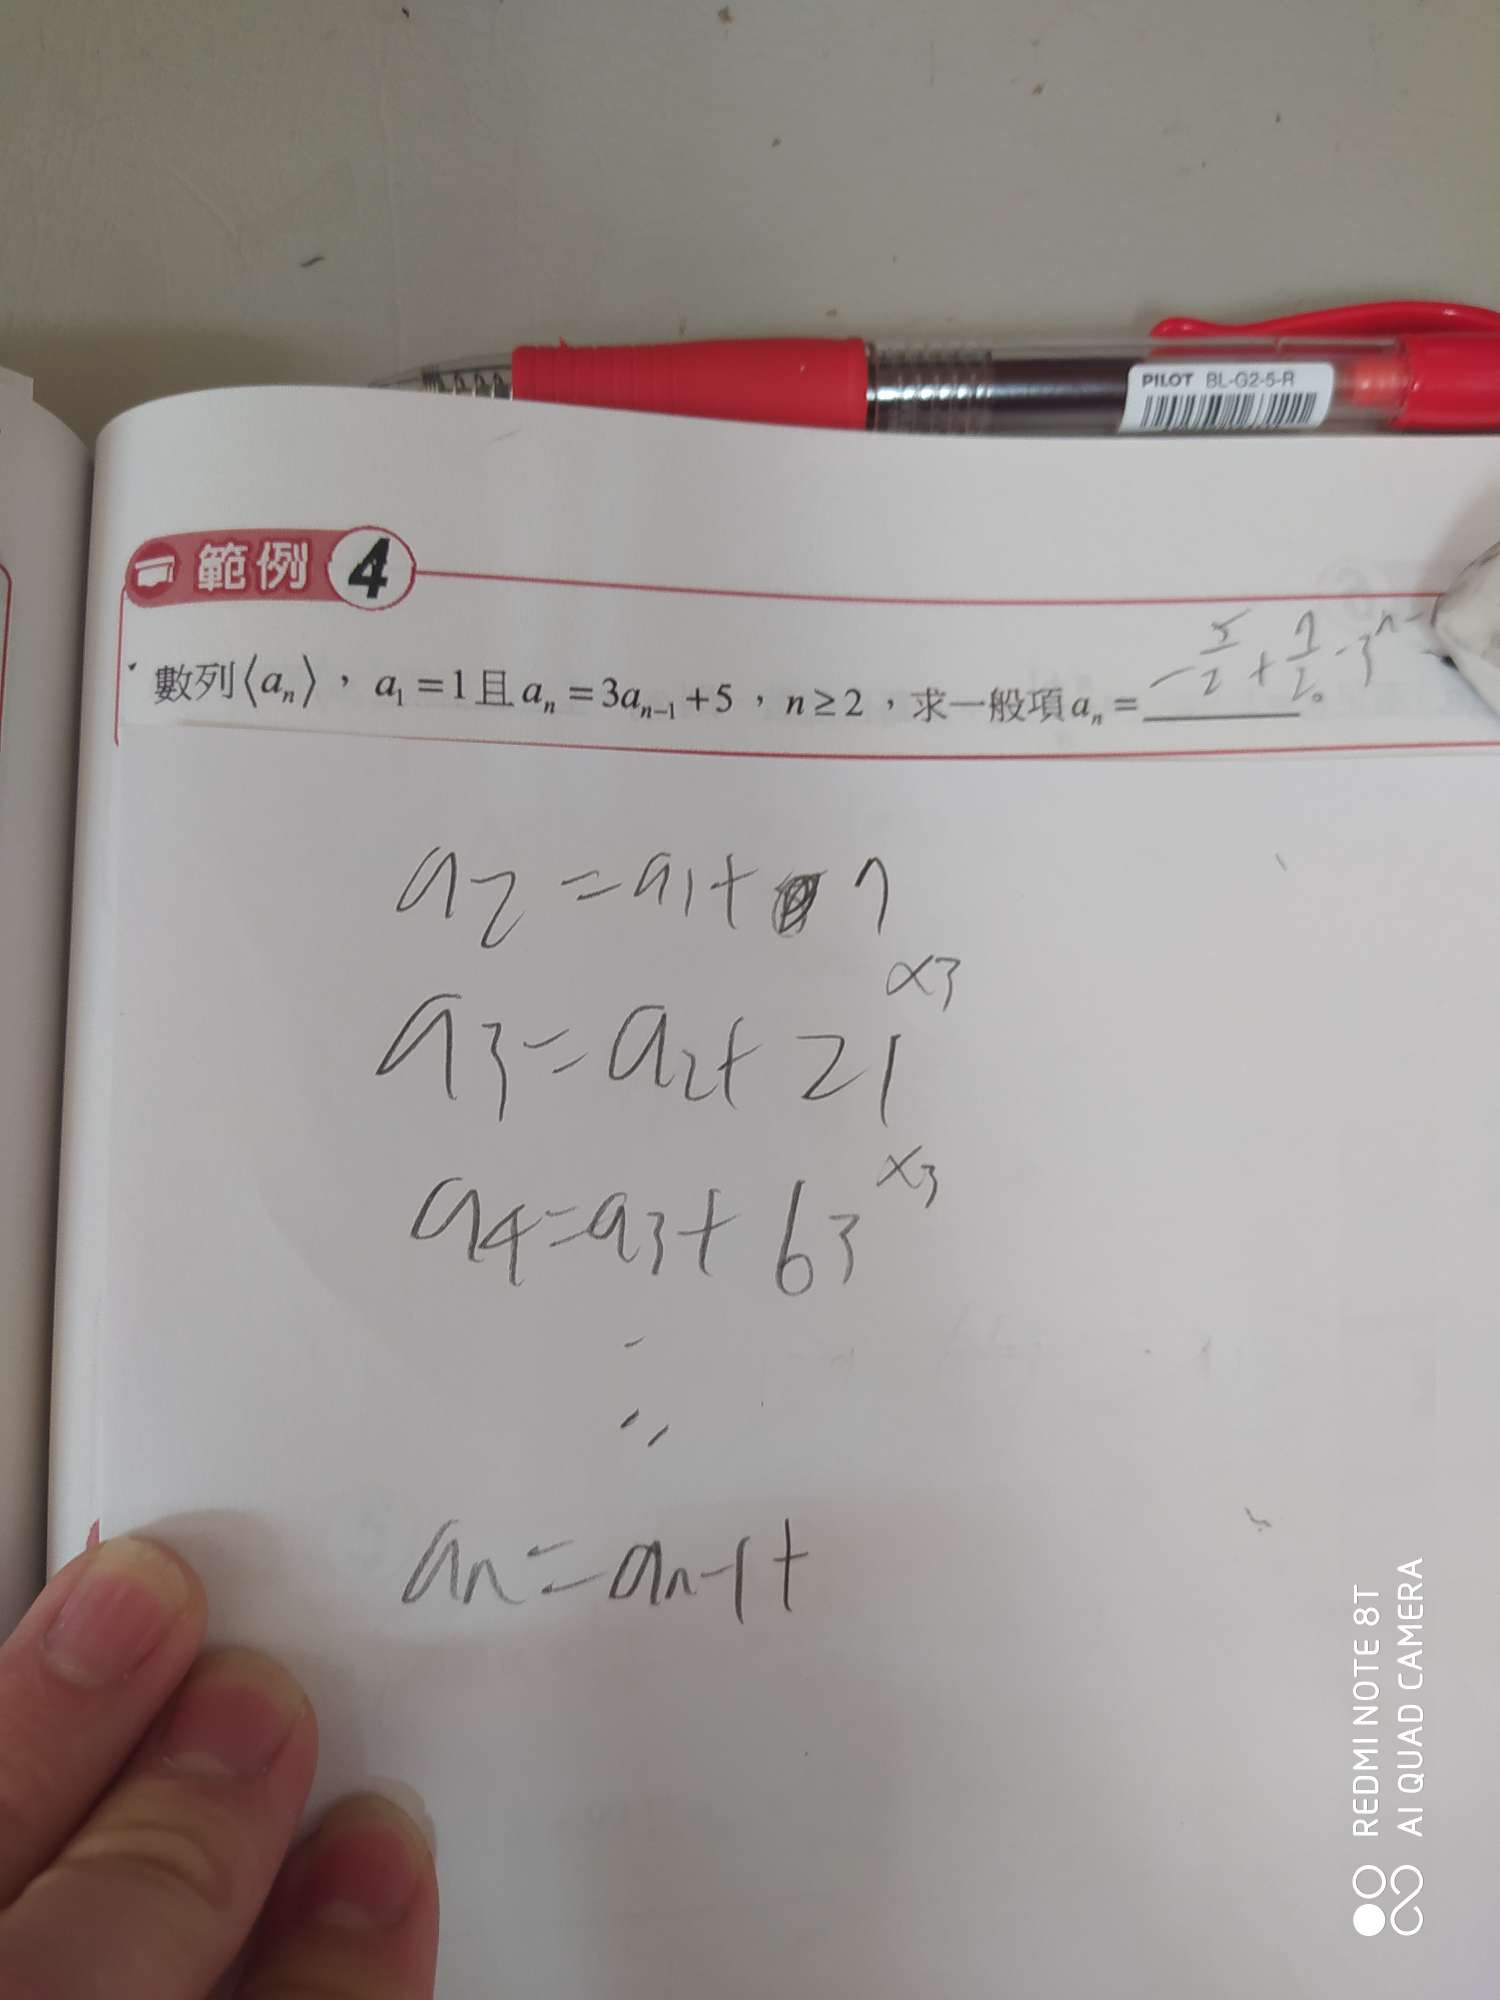 PILOT BL-G2-5-R
範例 4
數列⟨aₙ⟩，a₁=1且aₙ=3aₙ₋₁+5，n≥2，求一般項aₙ=______。
-5/2+7/2·3ⁿ⁻
a2=a1+7
x3
a3=a2+21
x3
a4=a3+63
an=an-1+
REDMI NOTE 8T
AI QUAD CAMERA